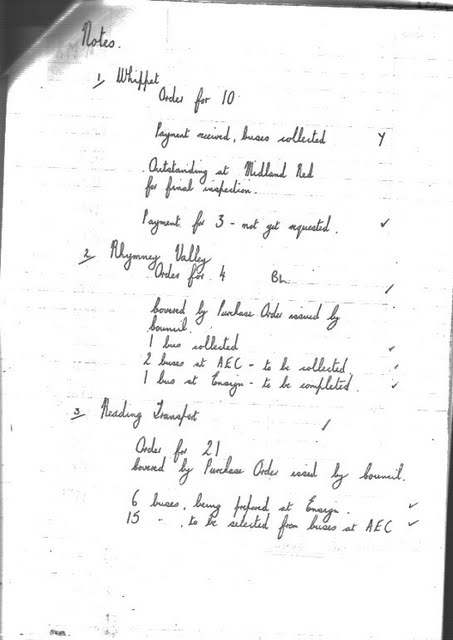 Notes.
1, Whippet
Order for 10
Payment received, buses collected
Outstanding at Midland Red
for final inspection.
Payment for 3 - not yet requested. ✓
2, Rhymney Valley
Order for 4 BL. ✓
Covered by Purchase Order issued by
Council
1 bus collected ✓
2 buses at AEC - to be collected. ✓
1 bus at Ensign - to be completed. ✓
3, Reading Transport ✓
Order for 21
Covered by Purchase Order issued by Council.
6 buses, being prepared at Ensign. ✓
15 " , to be selected from buses at AEC ✓